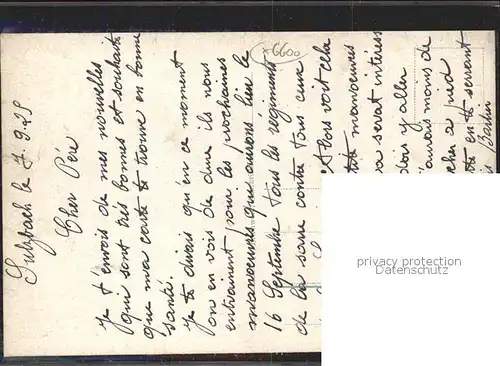 x6600
Sulzbach le 7.9.29
Cher Père
Je t envois de mes nouvelles
qui sont très bonnes et souhaite
que ma carte te trouve en bonne
santé.
Je te dirais qu'en ce moment
on en vois de dure ils nous
entrainent pour les prochaines
manoeuvres qui aurons lieu le
16 Septembre tous les régiments
de la sarre contre tous ceux
et tois voit cela
manoeuvres
serait intéress
y aller
aurais moins de
pied
en te serrant
privacy protection
Datenschutz